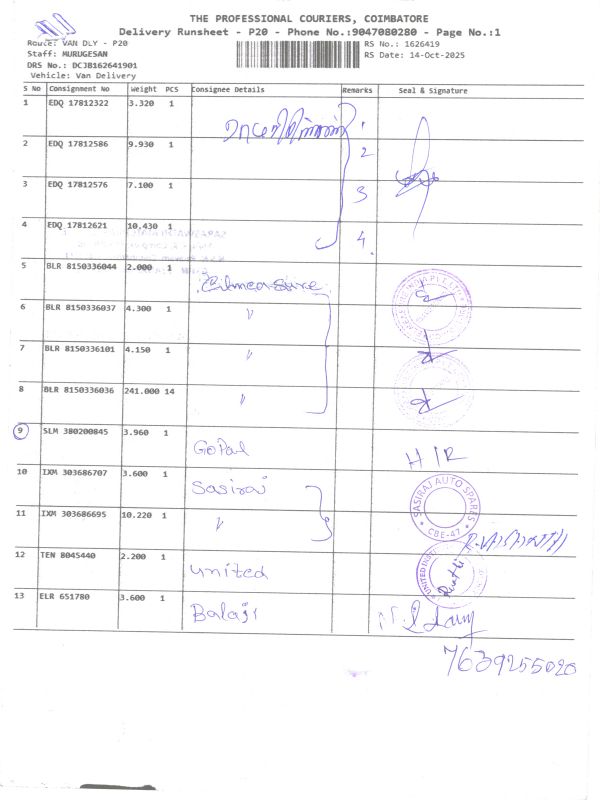 THE PROFESSIONAL COURIERS, COIMBATORE
Delivery Runsheet - P20 - Phone No.:9047080280 - Page No.:1
Route: VAN DLY - P20
RS No.: 1626419
Staff: MURUGESAN
RS Date: 14-Oct-2025
DRS No.: DCJB162641901
Vehicle: Van Delivery
S No Consignment No Weight PCS Consignee Details Remarks Seal & Signature
1 EDQ 17812322 3.320 1 1
2 EDQ 17812586 9.930 1 2
3 EDQ 17812576 7.100 1 3
4 EDQ 17812621 10.430 1 4.
5 BLR 8150336044 2.000 1
6 BLR 8150336037 4.300 1 "
7 BLR 8150336101 4.150 1 "
8 BLR 8150336036 241.000 14 "
9 SLM 380200845 3.960 1 Gopal H/R
10 IXM 303686707 3.600 1 Sasiraj SASIRAJ AUTO SPARES
11 IXM 303686695 10.220 1 " CBE-47
12 TEN 8045440 2.200 1 united UNITED
13 ELR 651780 3.600 1 Balaji
7639255020